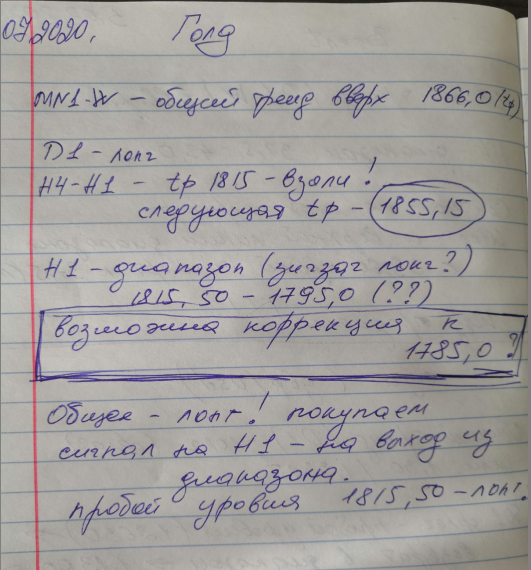 07.2020. Голд
MN1-W – общий тренд вверх 1866,0 (tp)
D1 – лонг
H4-H1 – tp 1815 – взяли!
следующая tp – 1855,15
H1 – диапазон (зигзаг лонг?)
1815,50 – 1795,0 (??)
возможна коррекция к
1785,0 ?
Общее – лонг! покупаем
сигнал на H1 – на выход из
диапазона.
пробой уровня 1815,50 – лонг.